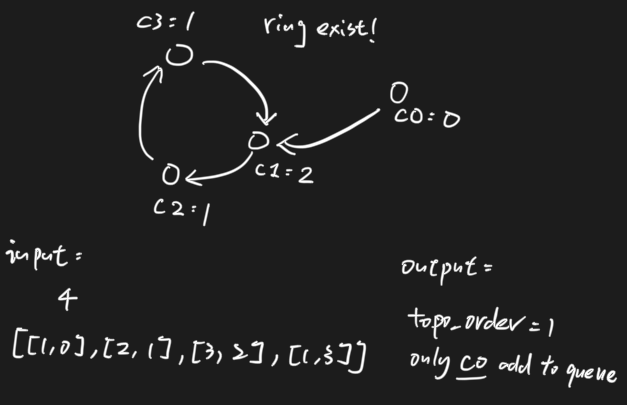 c3:1
ring exist!
C0:0
C1=2
C2:1
input:
4
[[1,0],[2,1],[3,2],[1,3]]
output=
topo_order=1
only C0 add to queue